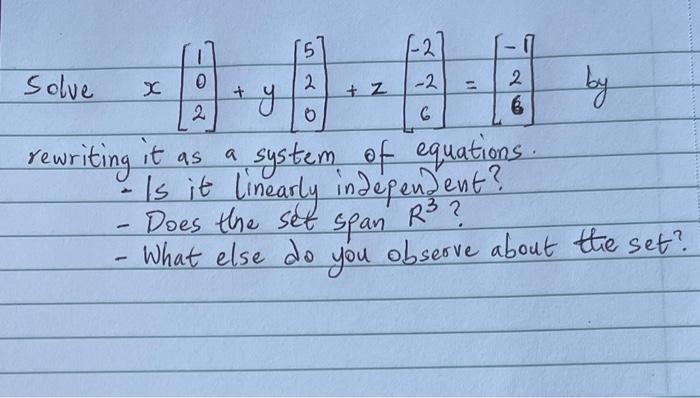 Solve x [1 0 2] + y [5 2 0] + z [-2 -2 6] = [-1 2 6] by
rewriting it as a system of equations.
- Is it linearly independent?
- Does the set span R³?
- What else do you observe about the set?